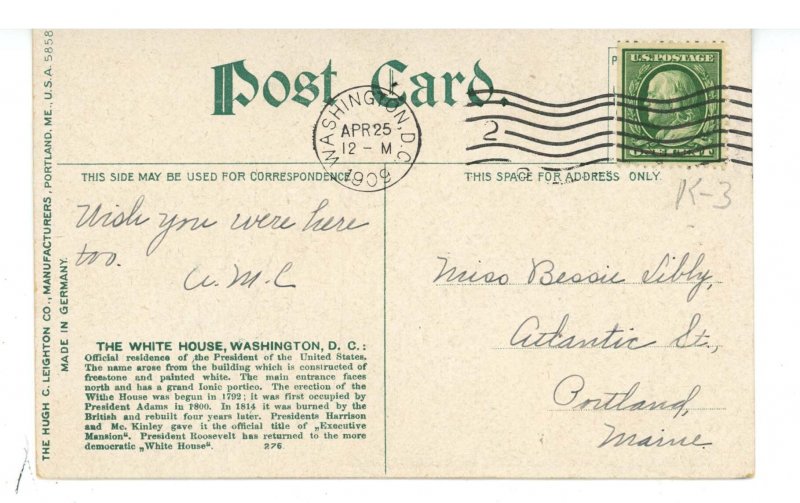 Post Card.
U.S. POSTAGE
WASHINGTON, D.C.
APR 25
12 – M
1909
2
THIS SIDE MAY BE USED FOR CORRESPONDENCE
THIS SPACE FOR ADDRESS ONLY.
K-3
Wish you were here
too.
A.M.C
Miss Bessie Libby,
Atlantic St.,
Portland,
Maine.
THE WHITE HOUSE, WASHINGTON, D. C.:
Official residence of the President of the United States.
The name arose from the building which is constructed of
freestone and painted white. The main entrance faces
north and has a grand Ionic portico. The erection of the
Withe House was begun in 1792; it was first occupied by
President Adams in 1800. In 1814 it was burned by the
British and rebuilt four years later. Presidents Harrison
and Mc. Kinley gave it the official title of „Executive
Mansion“. President Roosevelt has returned to the more
democratic „White House“. 276.
THE HUGH C. LEIGHTON CO., MANUFACTURERS, PORTLAND, ME., U.S.A. 5858
MADE IN GERMANY.